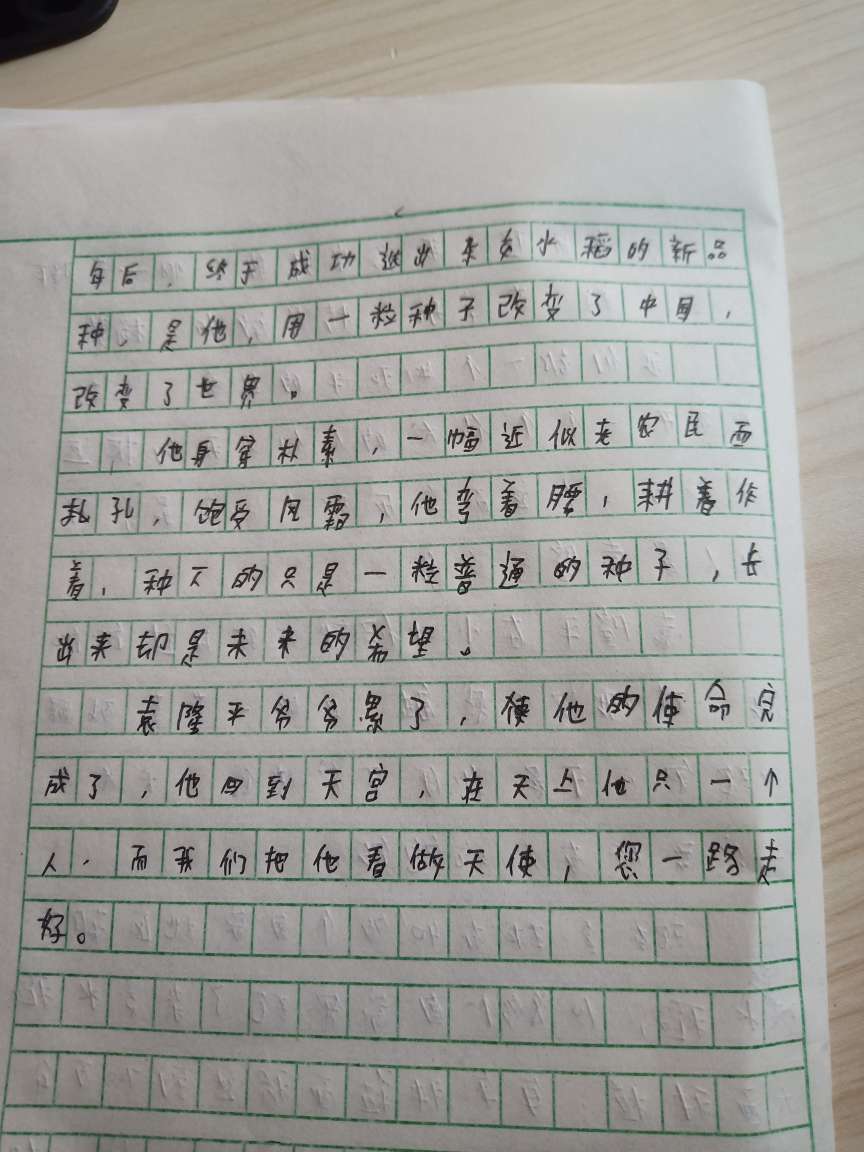 年后，终于成功选出来女水稻的新品
种，是他，用一粒种子改变了中国，
改变了世界。
他身穿朴素，一幅近似老农民面
扎孔，饱受风霜，他弯着腰，耕着作
着，种下的只是一粒普通的种子，长
出来却是未来的希望。
袁隆平爷爷累了，使他的使命完
成了，他回到天宫，在天上他只一个
人，而我们把他看做天使，您一路走
好。